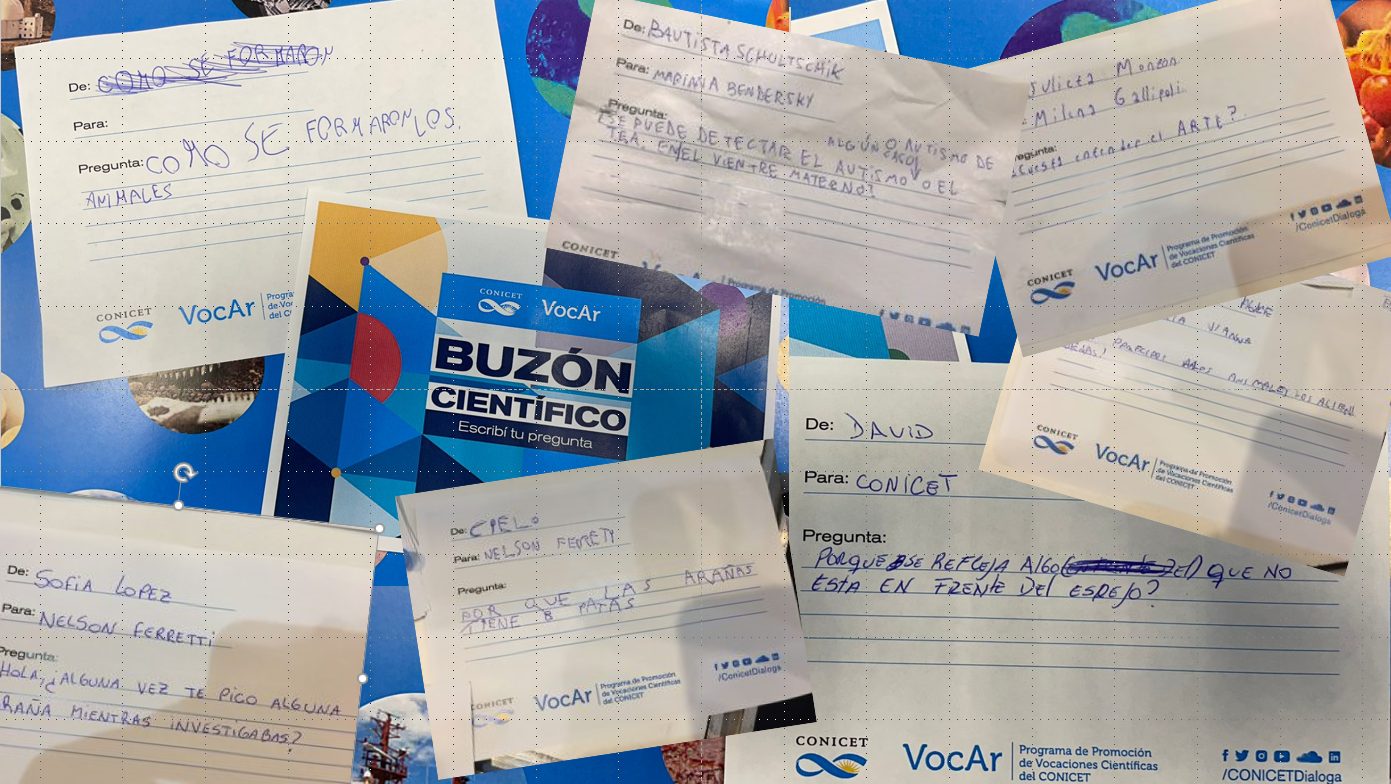 De: COMO SE FORMARON
Para:
Pregunta: COMO SE FORMARON LOS.
ANIMALES
CONICET
VocAr
De: BAUTISTA SCHULTSCHIK
Para: MARINNA BENDERSKY
Pregunta:
ALGÚN CASO
¿SE PUEDE DETECTAR EL AUTISMO O AUTISMO DE
TEA. EN EL VIENTRE MATERNO?
CONICET
Programa de Promoción
Julieta Monzon
Milena Gallipoli.
cuesta entender el ARTE?
CONICET
VocAr
Programa de Promoción
de Vocaciones Científicas
del CONICET
/ConicetDialoga
CONICET VocAr
BUZÓN
CIENTÍFICO
Escribí tu pregunta
VIANNA
ANIMALES LOS
CONICET
VocAr
Programa de Promoción
de Vocaciones Científicas
del CONICET
/ConicetDialoga
De: SOFIA LOPEZ
Para: NELSON FERRETTI
Pregunta:
HOLA, ¿ALGUNA VEZ TE PICO ALGUNA
RAÑA MIENTRAS INVESTIGABAS?
De: CIELO
Para: NELSON FERRETI
Pregunta:
POR QUE LAS ARAÑAS
TIENE 8 PATAS
CONICET
VocAr
Programa de Promoción
de Vocaciones Científicas
del CONICET
/ConicetDialoga
De: DAVID
Para: CONICET
Pregunta:
PORQUE SE REFLEJA ALGO QUE NO
ESTA EN FRENTE DEL ESPEJO?
CONICET
VocAr
Programa de Promoción
de Vocaciones Científicas
del CONICET
/CONICETDialoga